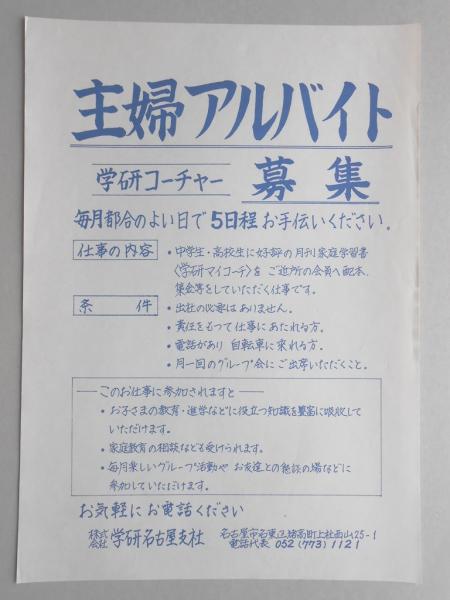 主婦アルバイト
学研コーチャー 募集
毎月都合のよい日で5日程お手伝いください。
仕事の内容 ・中学生・高校生に好評の月刊家庭学習書
〈学研マイコーチ〉を ご近所の会員へ配本、
集金等をしていただく仕事です。
条件 ・出社の必要はありません。
・責任をもって仕事にあたれる方。
・電話があり 自転車に乗れる方。
・月一回のグループ会にご出席いただくこと。
このお仕事に参加されますと
・お子さまの教育・進学などに役立つ知識を豊富に吸収して
いただけます。
・家庭教育の相談なども受けられます。
・毎月楽しいグループ活動や お友達との懇談の場などに
参加していただけます。
お気軽にお電話ください
株式会社 学研名古屋支社 名古屋市名東区猪高町上社西山25-1
電話代表 052(773)1121